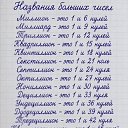 Названия больших чисел
Миллион - это 1 и 6 нулей
Миллиард - это 1 и 9 нулей
Триллион - это 1 и 12 нулей
Квадриллион - это 1 и 15 нулей
Квинтиллион - это 1 и 18 нулей
Секстиллион - это 1 и 21 нуль
Септиллион - это 1 и 24 нуля
Октиллион - это 1 и 27 нулей
Нониллион - это 1 и 30 нулей
Дециллион - это 1 и 33 нуля
Ундециллион - это 1 и 36 нулей
Дуодециллион - это 1 и 39 нулей
Тредециллион - это 1 и 42 нуля